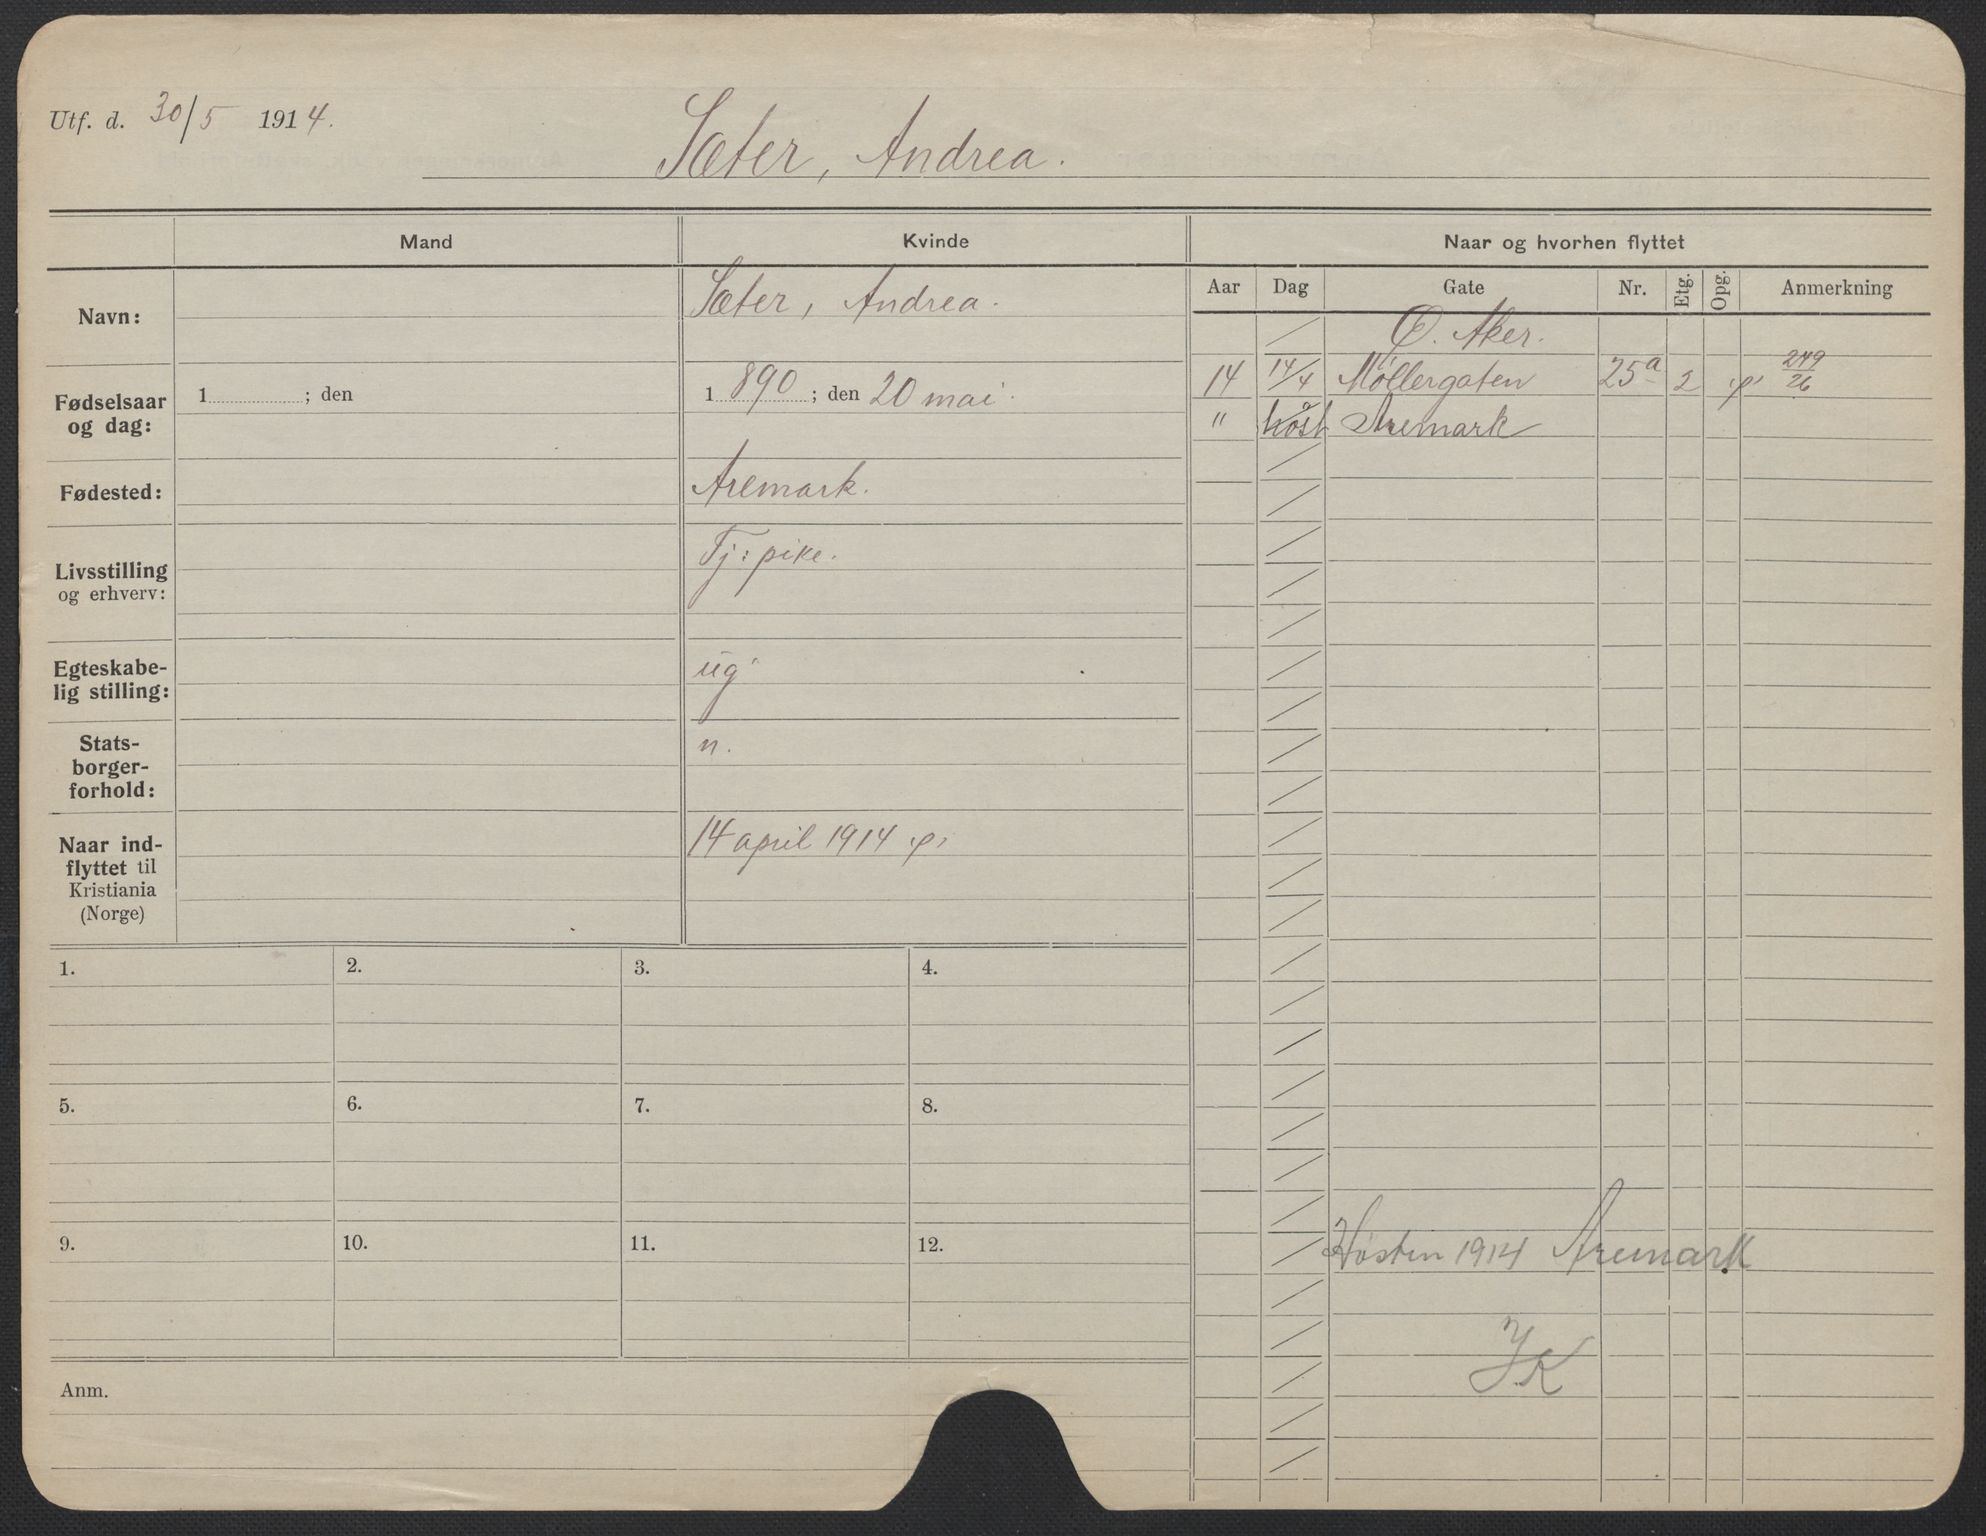 Utf. d. 30/5 1914.
Sæter, Andrea.
Mand
Kvinde
Naar og hvorhen flyttet
Navn:
Sæter, Andrea.
Aar Dag Gate Nr. Etg. Opg. Anmerkning
Ø. Aker.
14 14/4 Møllergaten 25a 2 249/26
" høst Aremark
Fødselsaar
og dag:
1 ; den
1890 ; den 20 mai.
Fødested:
Aremark.
Livsstilling
og erhverv:
Tj: pike.
Egteskabe-
lig stilling:
ug
Stats-
borger-
forhold:
n.
Naar ind-
flyttet til
Kristiania
(Norge)
14 april 1914
1. 2. 3. 4.
5. 6. 7. 8.
9. 10. 11. 12.
Høsten 1914 Aremark
Anm.